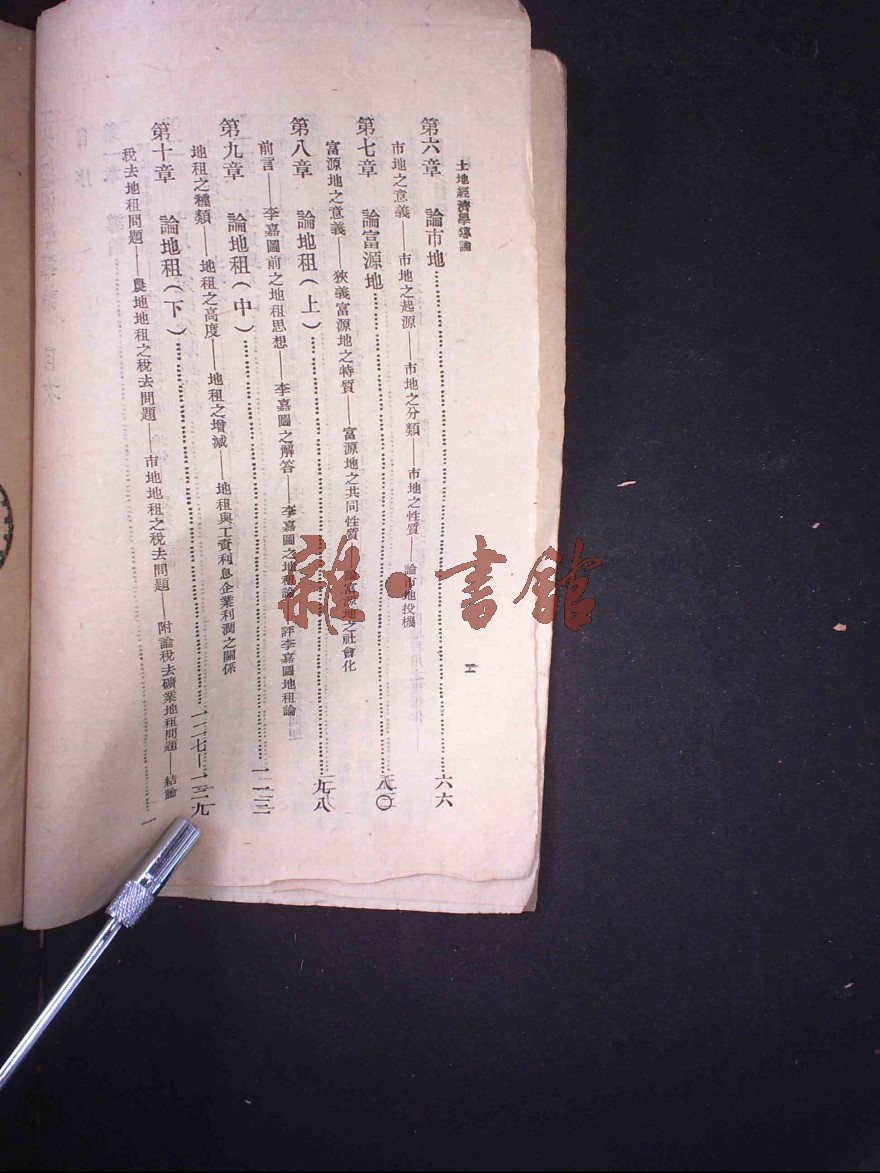 土地經濟學導論
第六章　論市地……六六
市地之意義——市地之起源——市地之分類——市地之性質——論市地投機
第七章　論富源地……八〇
富源地之意義——狹義富源地之特質——富源地之共同性質——富源地之社會化
第八章　論地租(上)……九八
前言——李嘉圖前之地租思想——李嘉圖之解答——李嘉圖之地租論——評李嘉圖地租論
第九章　論地租(中)……一一三
地租之種類——地租之高度——地租之增減——地租與工資利息企業利潤之關係
第十章　論地租(下)……一二七—一三九
稅去地租問題——農地地租之稅去問題——市地地租之稅去問題——附論稅去礦業地租問題——結論
雜·書館